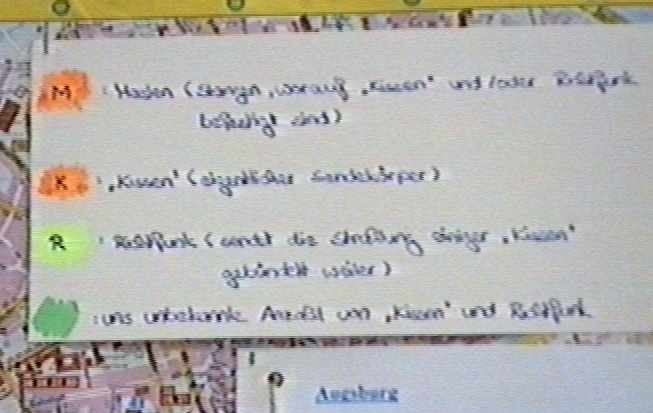 M : Masten (Stangen, worauf „Kissen" und/oder Richtfunk
befestigt sind)
K : „Kissen" (eigentlicher Sendekörper)
R : Richtfunk (sendet die Strahlung einiger „Kissen"
gebündelt weiter)
: uns unbekannte Anzahl von „Kissen" und Richtfunk
Augsburg